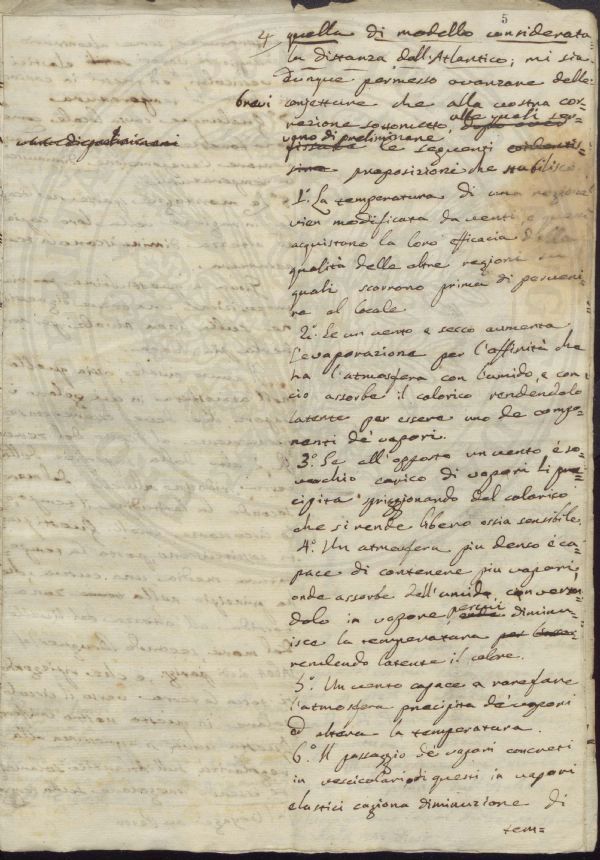 5
4 quella di modello considerata
la distanza dall'Atlantico; mi sia
dunque permesso avanzare delle
brevi conjetture che alla vostra cor=
rezione sottometto, alle quali ser=
vono di preliminare
le seguenti
proposizioni che stabilisco.
1.° La temperatura di una regione
vien modificata da venti e questi
acquistano la loro efficacia dalla
qualità delle altre regioni su
quali scorrono prima di perveni=
re al locale
2.° Se un vento e secco aumenta
l'evaporazione per l'affinità che
ha l'atmosfera con l'umido, e con
ciò assorbe il calorico rendendolo
latente per essere uno de compo=
nenti de' vapori.
3.° Se all'opposto un vento è so=
verchio carico di vapori li pre=
cipita spriggionando del calorico
che si rende libero ossia sensibile.
4.° Un atmosfera piu densa è ca=
pace di contenere piu vapori,
onde assorbe dell'umido, converten=
dolo in vapore, perciò diminu=
isce la temperatura
rendendo latente il calore.
5.° Un vento capace a rarefare
l'atmosfera precipita de' vapori
ed altera la temperatura.
6.° Il passaggio de' vapori concreti
in vescicolari, o di questi in vapori
elastici cagiona diminuzione di
tem=